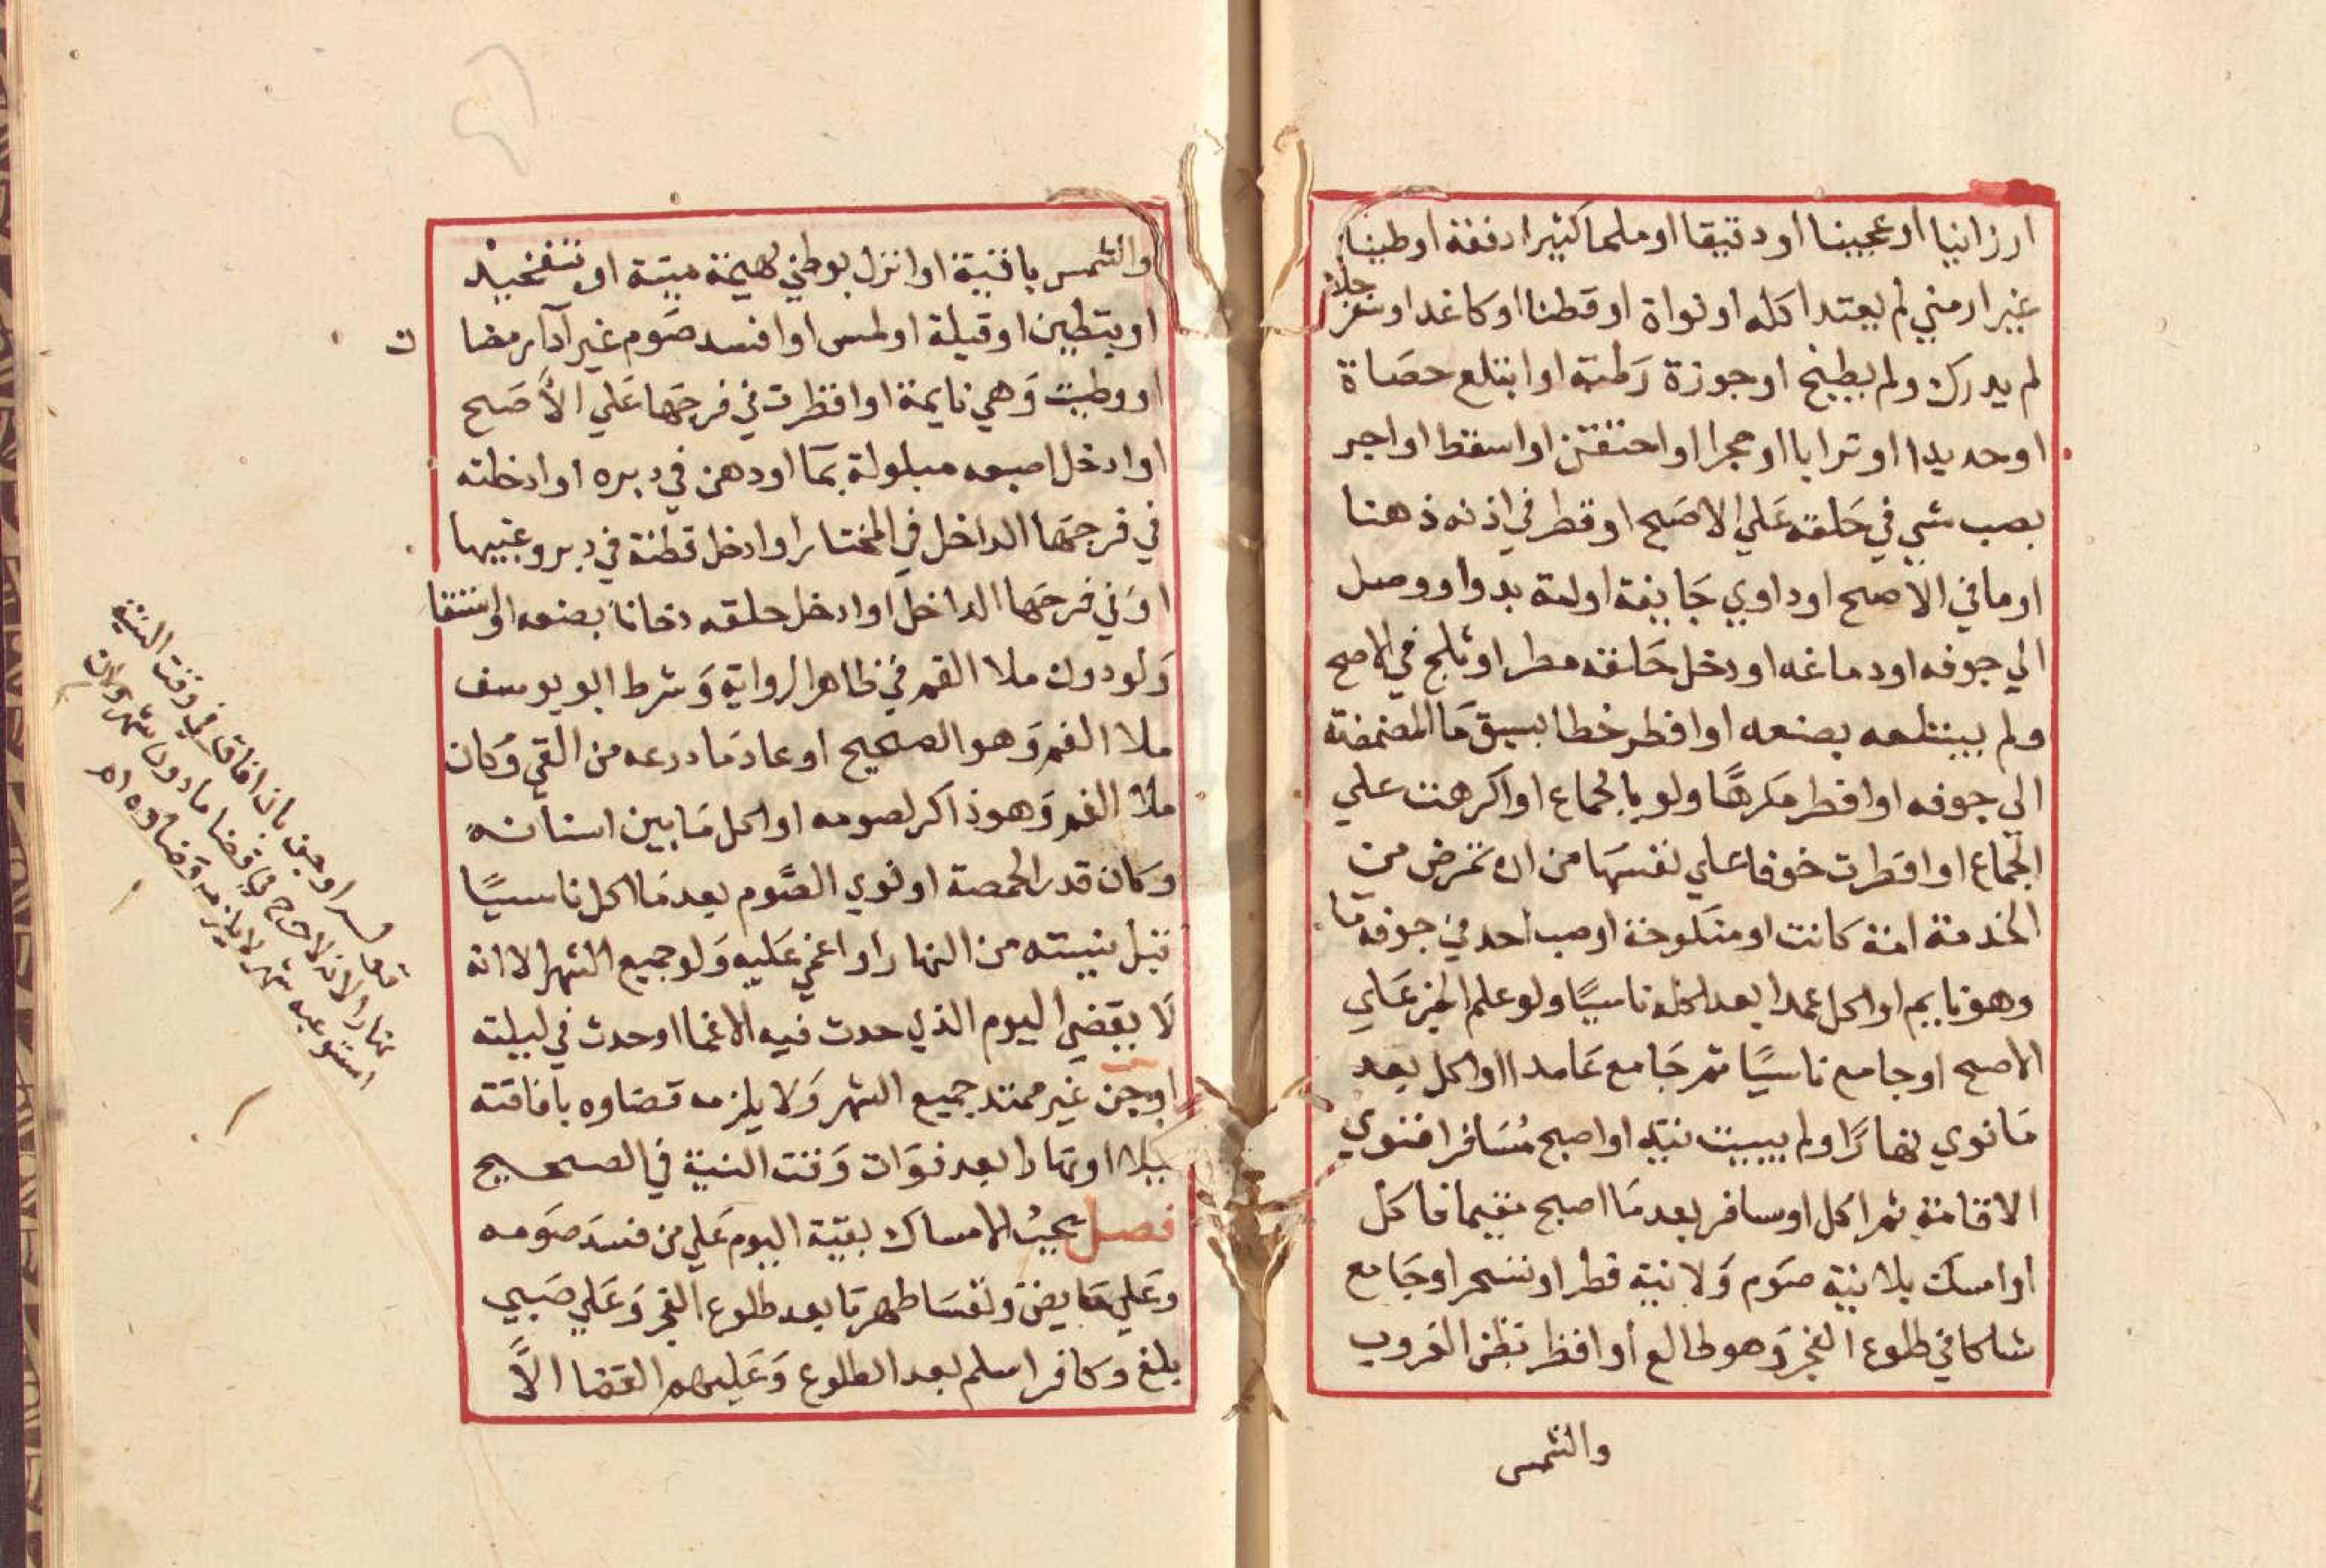 ارزانيا او عجينا او دقيقا او ملحا كثيرا دفعة او طينا
غير ارمني لم يعتد اكله او نواة او قطنا او كاغدا او سفرجلا
لم يدرك ولم يطبخ او جوزة رطبة او ابتلع حصاة
او حديدا او ترابا او حجرا او احتقن او اسقط او اجر
بصب شي في حلقه علي الاصح او قطر في اذنه ذهنا
او ما في الاصح او داوي جايفة او امة بدوا ووصل
الي جوفه او دماغه او دخل حلقه مطر او ثلج في الاصح
ولم يبتلعه بصنعه او افطر خطا بسبق مَا المضمضة
الي جوفه او افطر مكرهًا ولو بالجماع او اكرهت علي
الجماع او افطرت خوفا علي نفسها من ان تمرض من
الخدمة امة كانت او منكوحة او صب احد في جوفه مَا
وهو نايم او اكل عمدا بعد اكله ناسيًا ولو علم الخبر عَلي
الاصح او جامع ناسيًا ثم جَامع عَامدا او اكل بعد
مَا نوي نهارًا ولم يبيت نيته او اصبح مُسَافرا فنوي
الاقامة ثم اكل او سافر بعد مَا اصبح مقيما فاكل
او امسك بلا نية صَوم وَلا نية فطر او تسحر او جَامع
شاكا في طلوع الفجر وَهو طالع او افطر بظن الغروب
والشمس
والشمس باقية او انزل بوطي بهيمة ميتة او بتفخيذ
او بتبطين او قبلة او لمس او افسد صَوم غير آدَا رمضا
ن
او وطيت وَهي نايمة او اقطرت في فرجها عَلي الاَصَح
او ادخل اصبعه مبلولة بمَا او دهن في دبره او ادخلته
في فرجها الداخل في المختار او ادخل قطنة في دبر وغيبها
اوَ في فرجها الداخل او ادخل حلقه دخانًا بصنعه او استقا
وَلو دون ملا الفم في ظاهر الرواية وَشرط ابو يوسف
ملا الفم وَهو الصحيح او عاد مَا ذرعه من القي وَكان
ملا الفم وَهو ذاكر لصومه او اكل مَا بين اسنانه
وَكان قدر الحمصة او نوي الصَّوم بعد مَا اكل ناسيًا
قبل نيته من النهار او اغمي عَليه وَلو جميع الشهر الا انه
لَا يقضي اليوم الذي حدث فيه الاغما او حدث في ليلته
او جن غير ممتد جميع الشهر وَلا يلزمه قضاوه بافاقته
ليلا او نهارا بعد فوَات وَقت النية في الصحيح
فصل يجبُ الامساك بقية اليوم عَلي من فسَد صَومه
وعَلي حَايض وَنفسَا طهرتا بعد طلوع الفجر وَعَلي صَبي
بلغ وكافر اسلم بعد الطلوع وَعَليهم القضا الاَّ
او جن بان افاق في وقت النية
نهارا لانه لا حرج في قضا ما دون شهر وان
استوعبه شهر لا يلزمه قضاوه اه